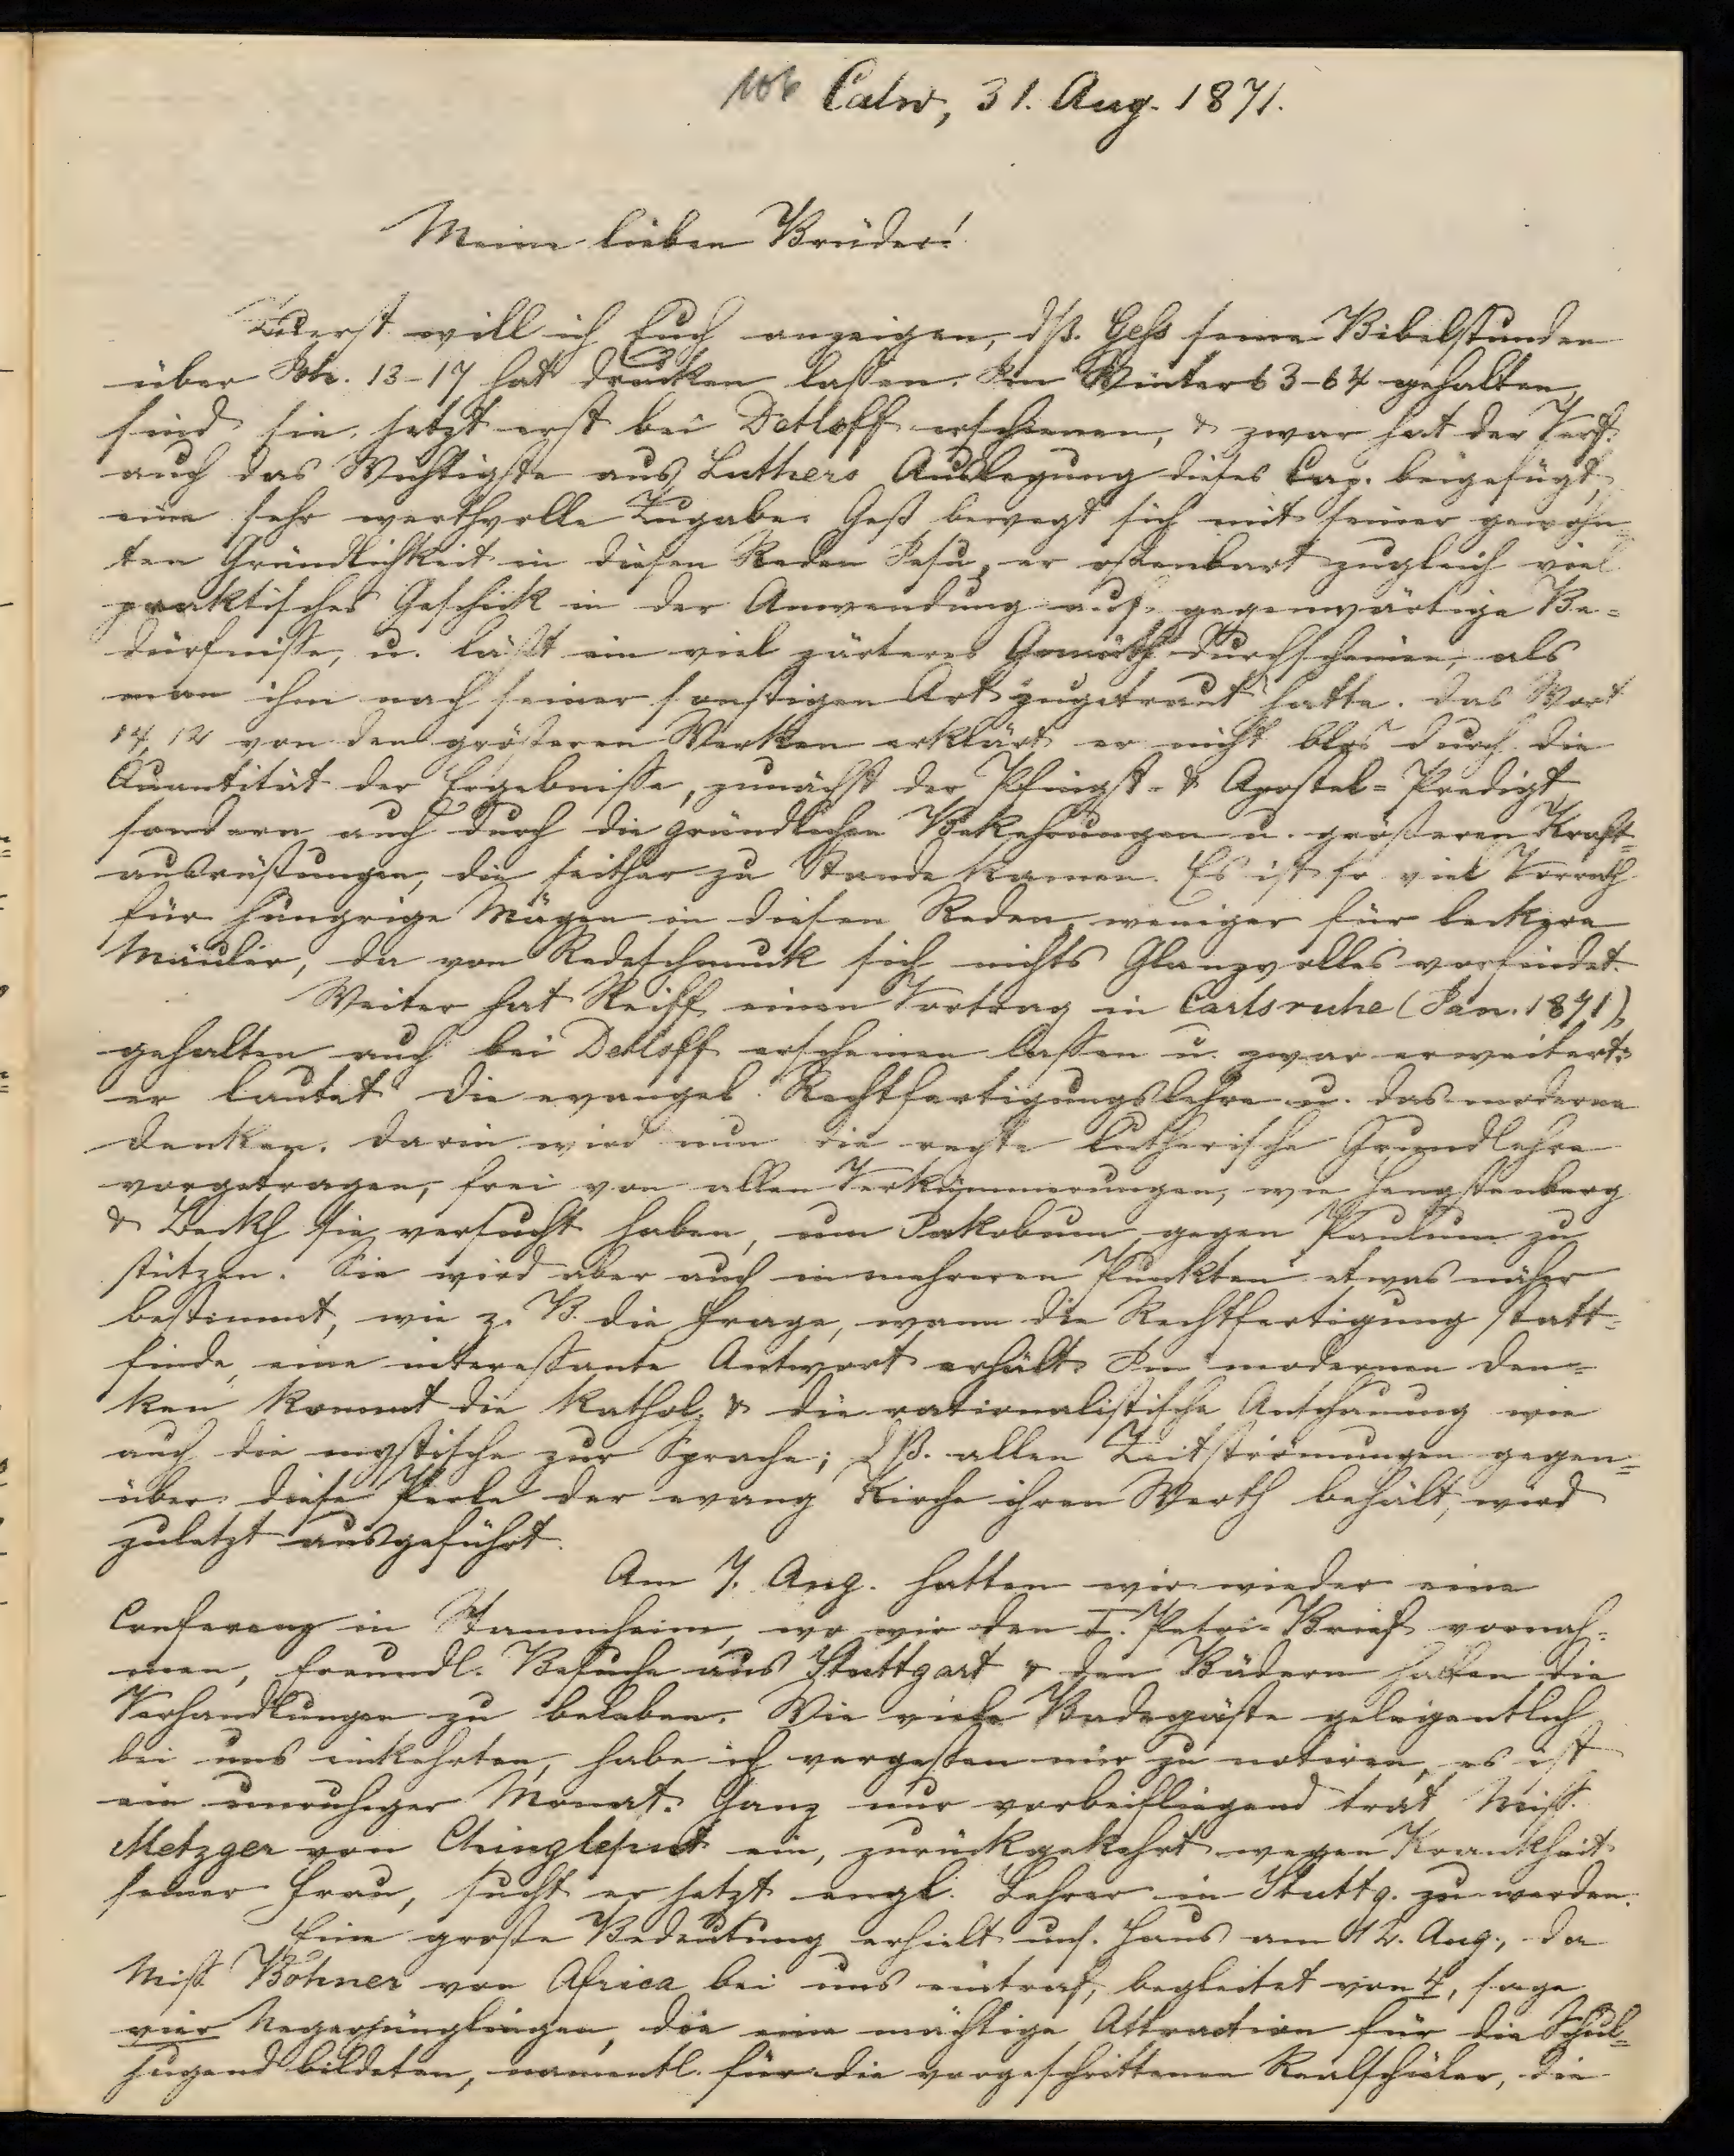 106 Calw, 31. Aug. 1871.
Meine lieben Brüder!
Zuerst will ich Euch anzeigen, dß. Geß seine Bibelstunden
über Joh. 13-17 hat drucken lassen. Im Winter 63-64 gehalten,
sind sie jetzt erst bei Detloff erschienen, & zwar hat der Verf.
auch das Wichtigste aus Luthers Auslegung dieses Cap. beigefügt,
eine sehr werthvolle Zugabe. Geß bewegt sich mit seiner gewohn-
ten Gründlichkeit in diesen Reden Jesu, er offenbart zugleich viel
praktisches Geschick in der Anwendung auf gegenwärtige Be-
dürfnisse, u. läßt ein viel zärteres Gemüth durchscheinen, als
man ihm nach seiner sonstigen Art zugetraut hätte. Das Wort
14,12 von den größeren Werken erklärt er nicht blos durch die
Quantität der Ergebnisse, zunächst der Pfingst- & Apostel-Predigt
sondern auch durch die gründlichen Bekehrungen u. größeren Kraft-
ausrüstungen, die seither zu Stande kamen. Es ist so viel Vorrath
für hungrige Mägen in diesen Reden, weniger für leckere
Mäuler, da von Redeschmuck sich nichts Glanzvolles vorfindet.
Weiter hat Reiff einen Vortrag in Carlsruhe (Jan. 1871)
gehalten auch bei Detloff erscheinen lassen u. zwar erweitert:
er lautet die evangel. Rechtfertigungslehre u. das moderne
Denken. Darin wird nun die rechte lutherische Grundlehre
vorgetragen, frei von allen Verkümmerungen, wie Hengstenberg
& Beckh sie versucht haben, um Jakobum gegen Paulum zu
stützen. Sie wird aber auch in mehreren Punkten etwas näher
bestimmt, wie z. B. die Frage, wann die Rechtfertigung statt-
finde, eine interessante Antwort erhält. Im modernen Den-
ken kommt die kathol. & die rationalistische Anschauung wie
auch die mystische zur Sprache; dß. allen Zeitströmungen gegen-
über diese Perle der evang Kirche ihren Werth behält, wird
zuletzt ausgeführt.
Am 7. Aug. hatten wir wieder eine
Conferenz in Stammheim, wo wir den I. Petri-Brief vornah-
men, freundl. Besuche aus Stuttgart & den Bädern halfen die
Verhandlungen zu beleben. Wie viele Badegäste gelegentlich
bei uns einkehrten, habe ich vergessen mir zu notiren, es ist
ein unruhiger Monat. Ganz nur vorbeifliegend trat Miss.
Metzger von Chingleput ein, zurückgekehrt wegen Krankheit
seiner Frau, sucht er jetzt engl. Lehrer in Stuttg. zu werden.
Eine große Bedeutung erhielt uns. Haus am 12. Aug., da
Miss Bohner von Africa bei uns eintraf, begleitet von 4, sage
vier Negerjünglingen, die eine mächtige Attraction für die Schul-
jugend bildeten, namentl. für die vorgeschrittenen Realschüler, die